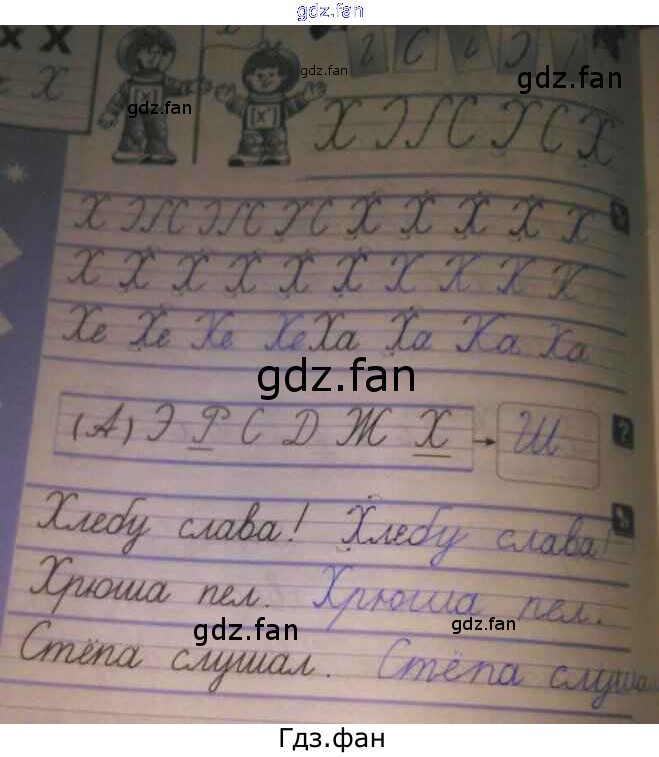 gdz.fan
х х
х
[х]
[х']
gdz.fan
gdz.fan
gdz.fan
Х Х Х Х Х Х
Х Х Х Х Х Х Х Х Х Х
Хе Хе Хе Хе Ха Ха Ха Ха
gdz.fan
(А) Э Р С Д Ж Х → Ш
Хлебу слава! Хлебу слава!
Хрюша пел. Хрюша пел.
gdz.fan gdz.fan
Стёпа слушал. Стёпа слушал
Гдз.фан